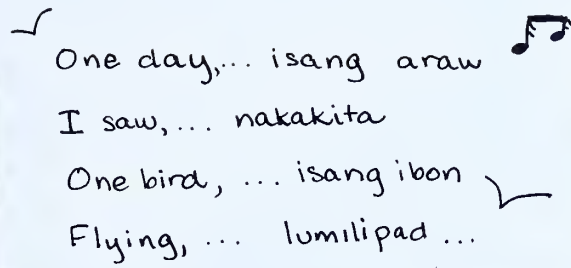 One day,... isang araw
I saw,... nakakita
One bird, ... isang ibon
Flying, ... lumilipad ...